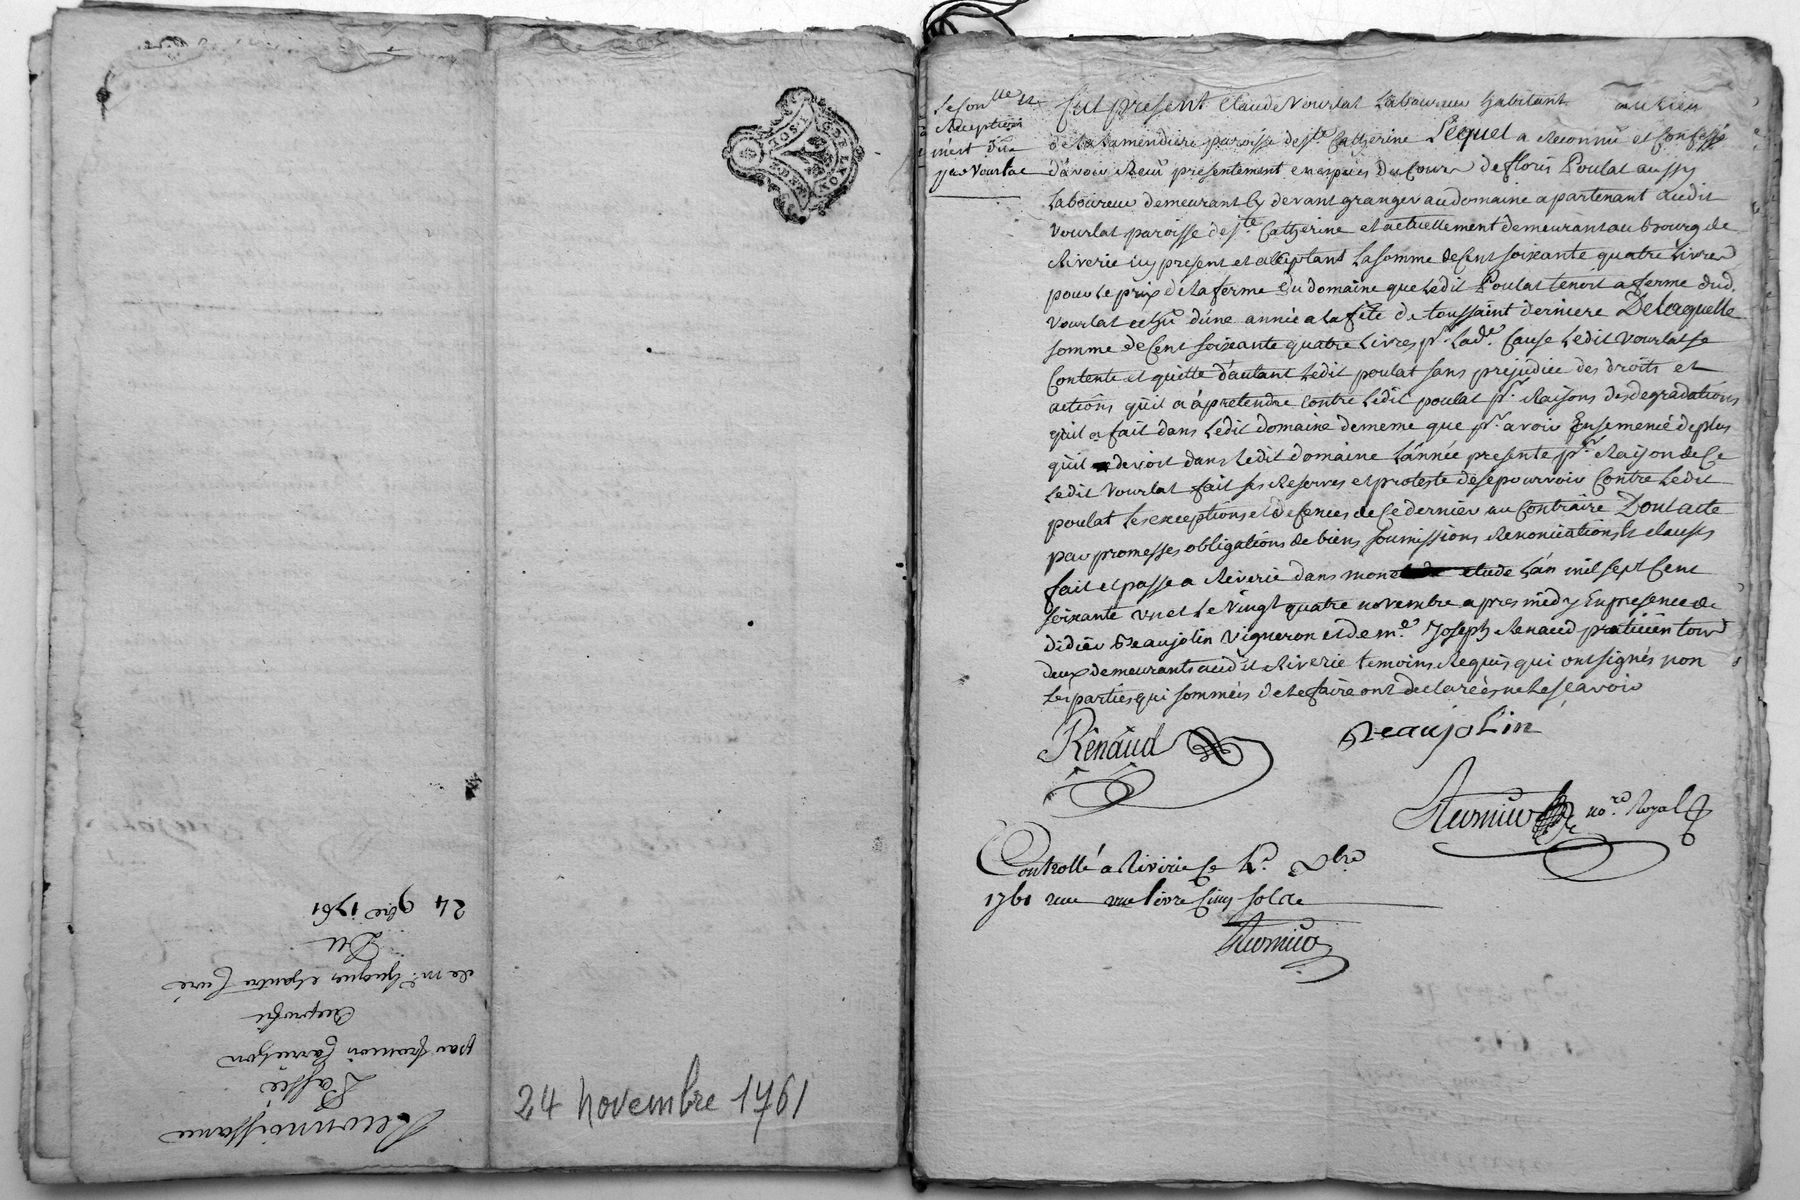 GNLTE DE LYON
24 9bre 1761
Du
de mr. hugues curé
au proffit
par francois
Passée
Reconnoissance
24 novembre 1761
Le controlle et
Reception
n'est du
par Vourlat
fut present Claude Vourlat Laboureur habitant au Lieu
de la Lamendiere paroisse de Ste Catherine Lequel a Reconnu et Confessé
d'avoir Receu presentement en espèces du Cours de floris Poulat aussy
Laboureur demeurant cy devant granger au domaine apartenant audit
Vourlat paroisse de Ste Catherine et actuellement demeurant au bourg de
Riverie icy present et acceptant La somme de Cent soixante quatre Livres
pour Le prix de la ferme du domaine que Ledit Poulat tenoit a ferme dud.
Vourlat echu d'une année a la fête de toussaint derniere De laquelle
somme de Cent soixante quatre Livres pr. Lade. Cause Ledit Vourlat se
Contente et quitte d'autant Ledit poulat sans prejudice des droits et
actions qu'il a à pretendre contre Ledit poulat pr. Raisons des degradations
qu'il a fait dans Ledit domaine de meme que pr. avoir Ensemencé de plus
qu'il devoit dans Ledit domaine L'année presente pr. Raison de Ce
Ledit Vourlat fait ses Reserves et proteste de se pourvoir Contre Ledit
poulat Les exceptions et defences de Ce dernier au Contraire Dont acte
par promesses obligations de biens soumissions Renonciations et clauses
fait et passe a Riverie dans mon etude L'an mil sept Cent
soixante un et Le Vingt quatre novembre apres midy En presence de
didier Beaujolin Vigneron et de me. Joseph Renaud praticien tous
deux demeurants audit Riverie temoins Requis qui ont signés non
Les parties qui sommées de Le faire ont declarées ne Le sçavoir
Renaud Beaujolin
nore. Royal
Controllé a Riverie Ce 4e. Xbre
1761 reçu une livre Cinq sols